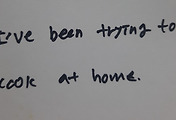 I've been trying to
cook at home.